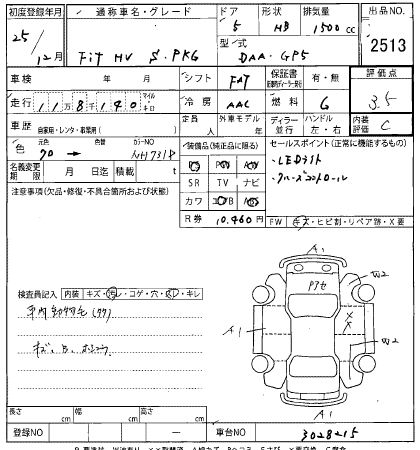 初度登録年月 通称車名・グレード ドア 形状 排気量 出品NO
25/12月 FIT HV S.PKG 5 HB 1500cc 2513
型式 DAA-GP5
車検 年 月 シフト FAT 保証書 有・無 評価点
走行 118140 マイル キロ 冷房 AAC 燃料 G 3.5
車歴 自家用・レンタ・事業用( ) 定員 人 外車モデル 年 ディーラー 並行 ハンドル 左・右 内装評価 C
色 元色 色替 カラーNO 装備品(純正品に限る) セールスポイント(正常に機能するもの)
70 → NH731P ・LEDライト
名義変更期限 月 日迄 積載 t SR TV ナビ ・クルーズコントロール
注意事項(欠品・修復・不具合箇所および状態) カワ AB
R券 10,460円 FW キズ・ヒビ割・リペア跡・X要
A1
W2
検査員記入 内装 キズ・汚レ・コゲ・穴・スレ・キレ
車内動物毛(ワワ)
A1
W2
A1
長さ cm 幅 cm 高さ cm
登録NO — 車台NO 3028215